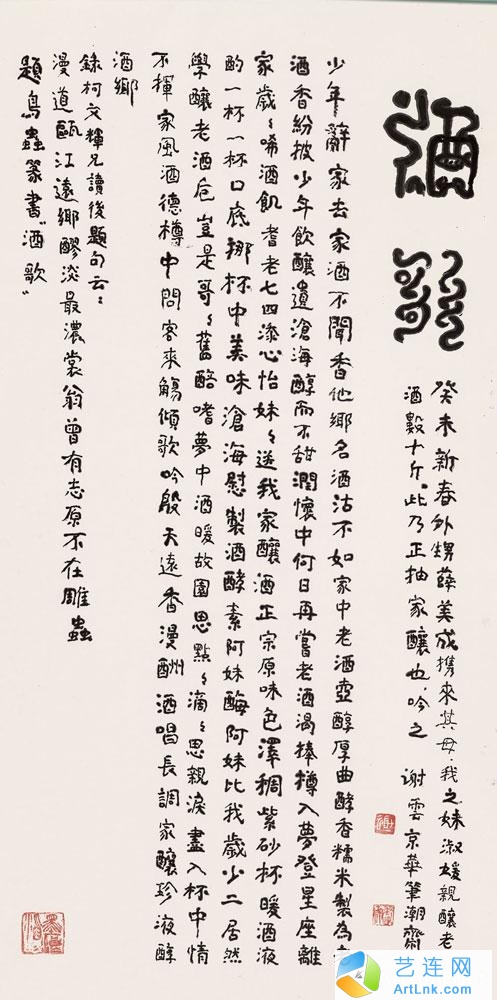 酒歌
癸未新春外甥薛美成携来其母、我之妹淑媛親釀老
酒數十斤。此乃正抽家釀也、吟之　謝雲京華筆潮齋
少年辭家去家酒不聞香他鄉名酒沽不如家中老酒壺醇厚曲酵香糯米製為
酒香紛披少年飲釀遺滄海醇而不甜潤懷中何日再嘗老酒渴捧樽入夢登星座離
家歲々唏酒飢耆老七四添心怡妹々送我家釀酒正宗原味色澤稠紫砂杯暖酒液
酌一杯一杯口底挪杯中美味滄海慰製酒酵素阿妹酶阿妹比我歲少二居然
學釀老酒卮豈是哥々舊醅嗜夢中酒暖故園思點々滴々思親淚盡入杯中情
不揮家風酒德樽中問客來觴傾歌吟殷天遠香漫酬酒唱長調家釀珍液醇
酒鄉
錄柯文輝兄讀後題句云：
漫道甌江遠鄉醪淡最濃裳翁曾有志原不在雕蟲
題鳥蟲篆書“酒歌”
艺连网
ArtLnk.com